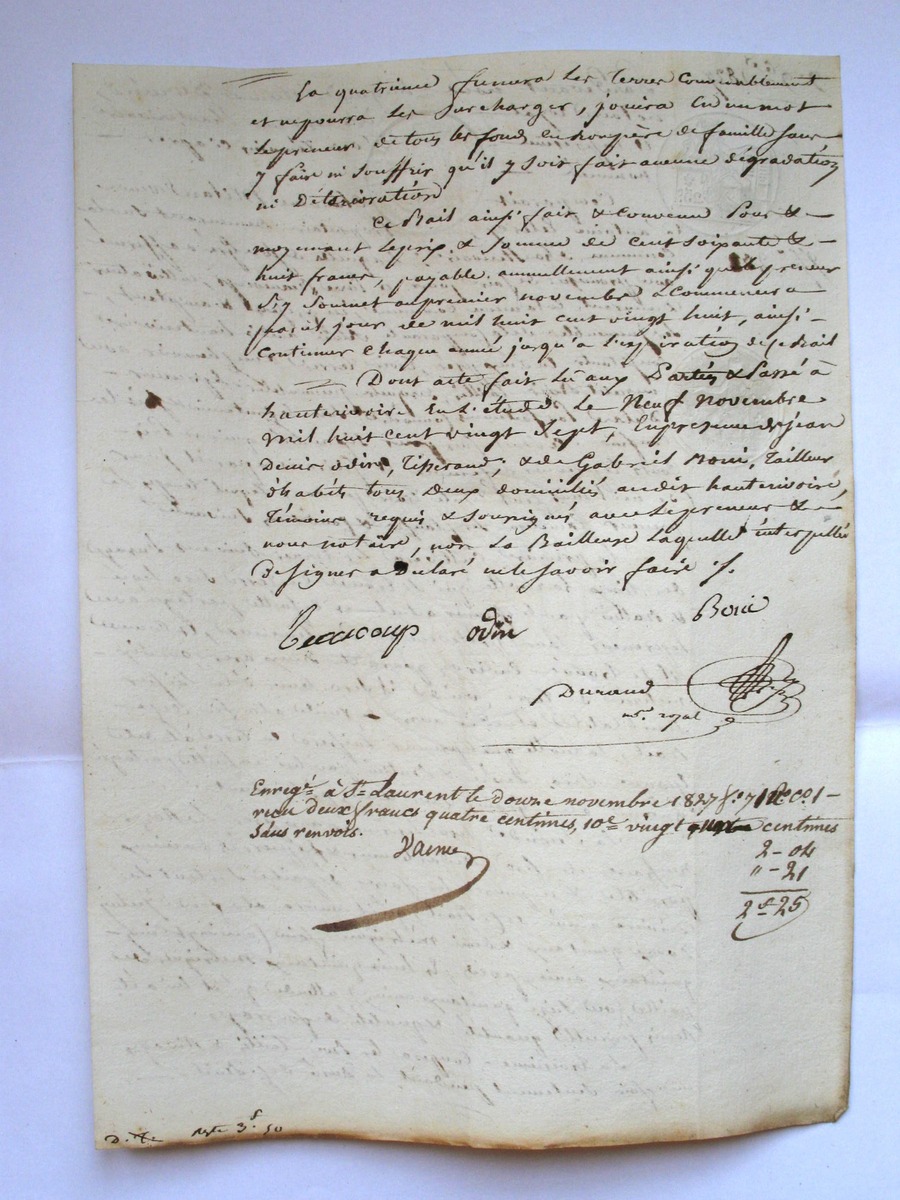 La quatrieme fumera les terres convenablement
et ne pourra les surcharger, jouira en un mot
le preneur de tous les fonds en bon père de famille sans
y faire ni souffrir qu'il y soit fait aucune dégradation
ni Détérioration
Ce Bail ainsi fait & convenu pour &
moyennant le prix & somme de cent soixante &
huit francs, payable annuellement ainsi que le preneur
s'y soumet au premier novembre a commencer a
pareil jour de mil huit cent vingt huit, ainsi
continuer chaque année jusqu'a l'expiration de ce Bail
Dont acte fait lû aux Parties & Passé à
hauterivoire En l'étude Le Neuf novembre
mil huit cent vingt sept, En presence de jean
Denis odin, Tisserand, & de Gabriel Boui, Tailleur
d'habits tous deux domiciliés audit hauterivoire,
Témoins requis & soussignés avec le preneur &
nous notaire, non La Bailleuse laquelle interpellée
de signer a Déclaré ne le savoir faire ./.
Beaucoup odin Boui
Durand
n.re royal
Enreg.é à S.t Laurent le douze novembre 1827 f.o 71 R.o c.o 1
reçu deux francs quatre centimes, 10.e vingt centimes
Sans renvois.
2 - 04
" - 21
2f 25
reste 3f 50